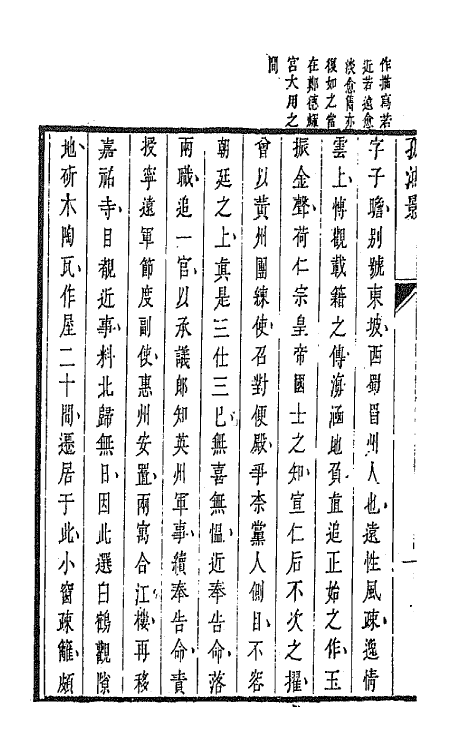 作描寫若
近若遠愈
淡愈雋亦
復如之當
在鄭德輝
宮大用之
間
孤鴻影
一
字子瞻别號東坡西蜀眉州人也、遠性風疎、逸情
雲上、愽觀載籍之傳、海涵地負、直追正始之作、玉
振金聲、荷仁宗皇帝國士之知、宣仁后不次之擢、
會以黄州團練使、召對便殿、爭柰黨人側目、不容
朝廷之上、真是三仕三已、無喜無慍、近奉告命、落
兩職、追一官、以承議郎知英州軍事、續奉告命、責
授寧遠軍節度副使、惠州安置、兩寓合江樓、再移
嘉祐寺、目覩近事、料北歸無日、因此選白鶴觀隙
地、斫木陶瓦、作屋二十間、遷居于此、小窗疎籬、頗